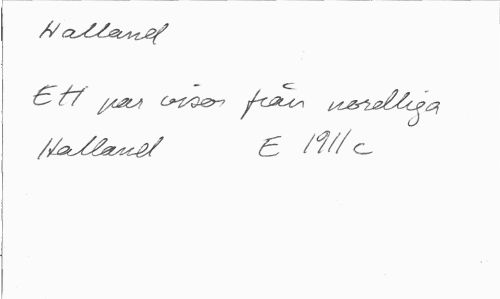 Halland
Ett par visor från nordliga
Halland E 1911 c